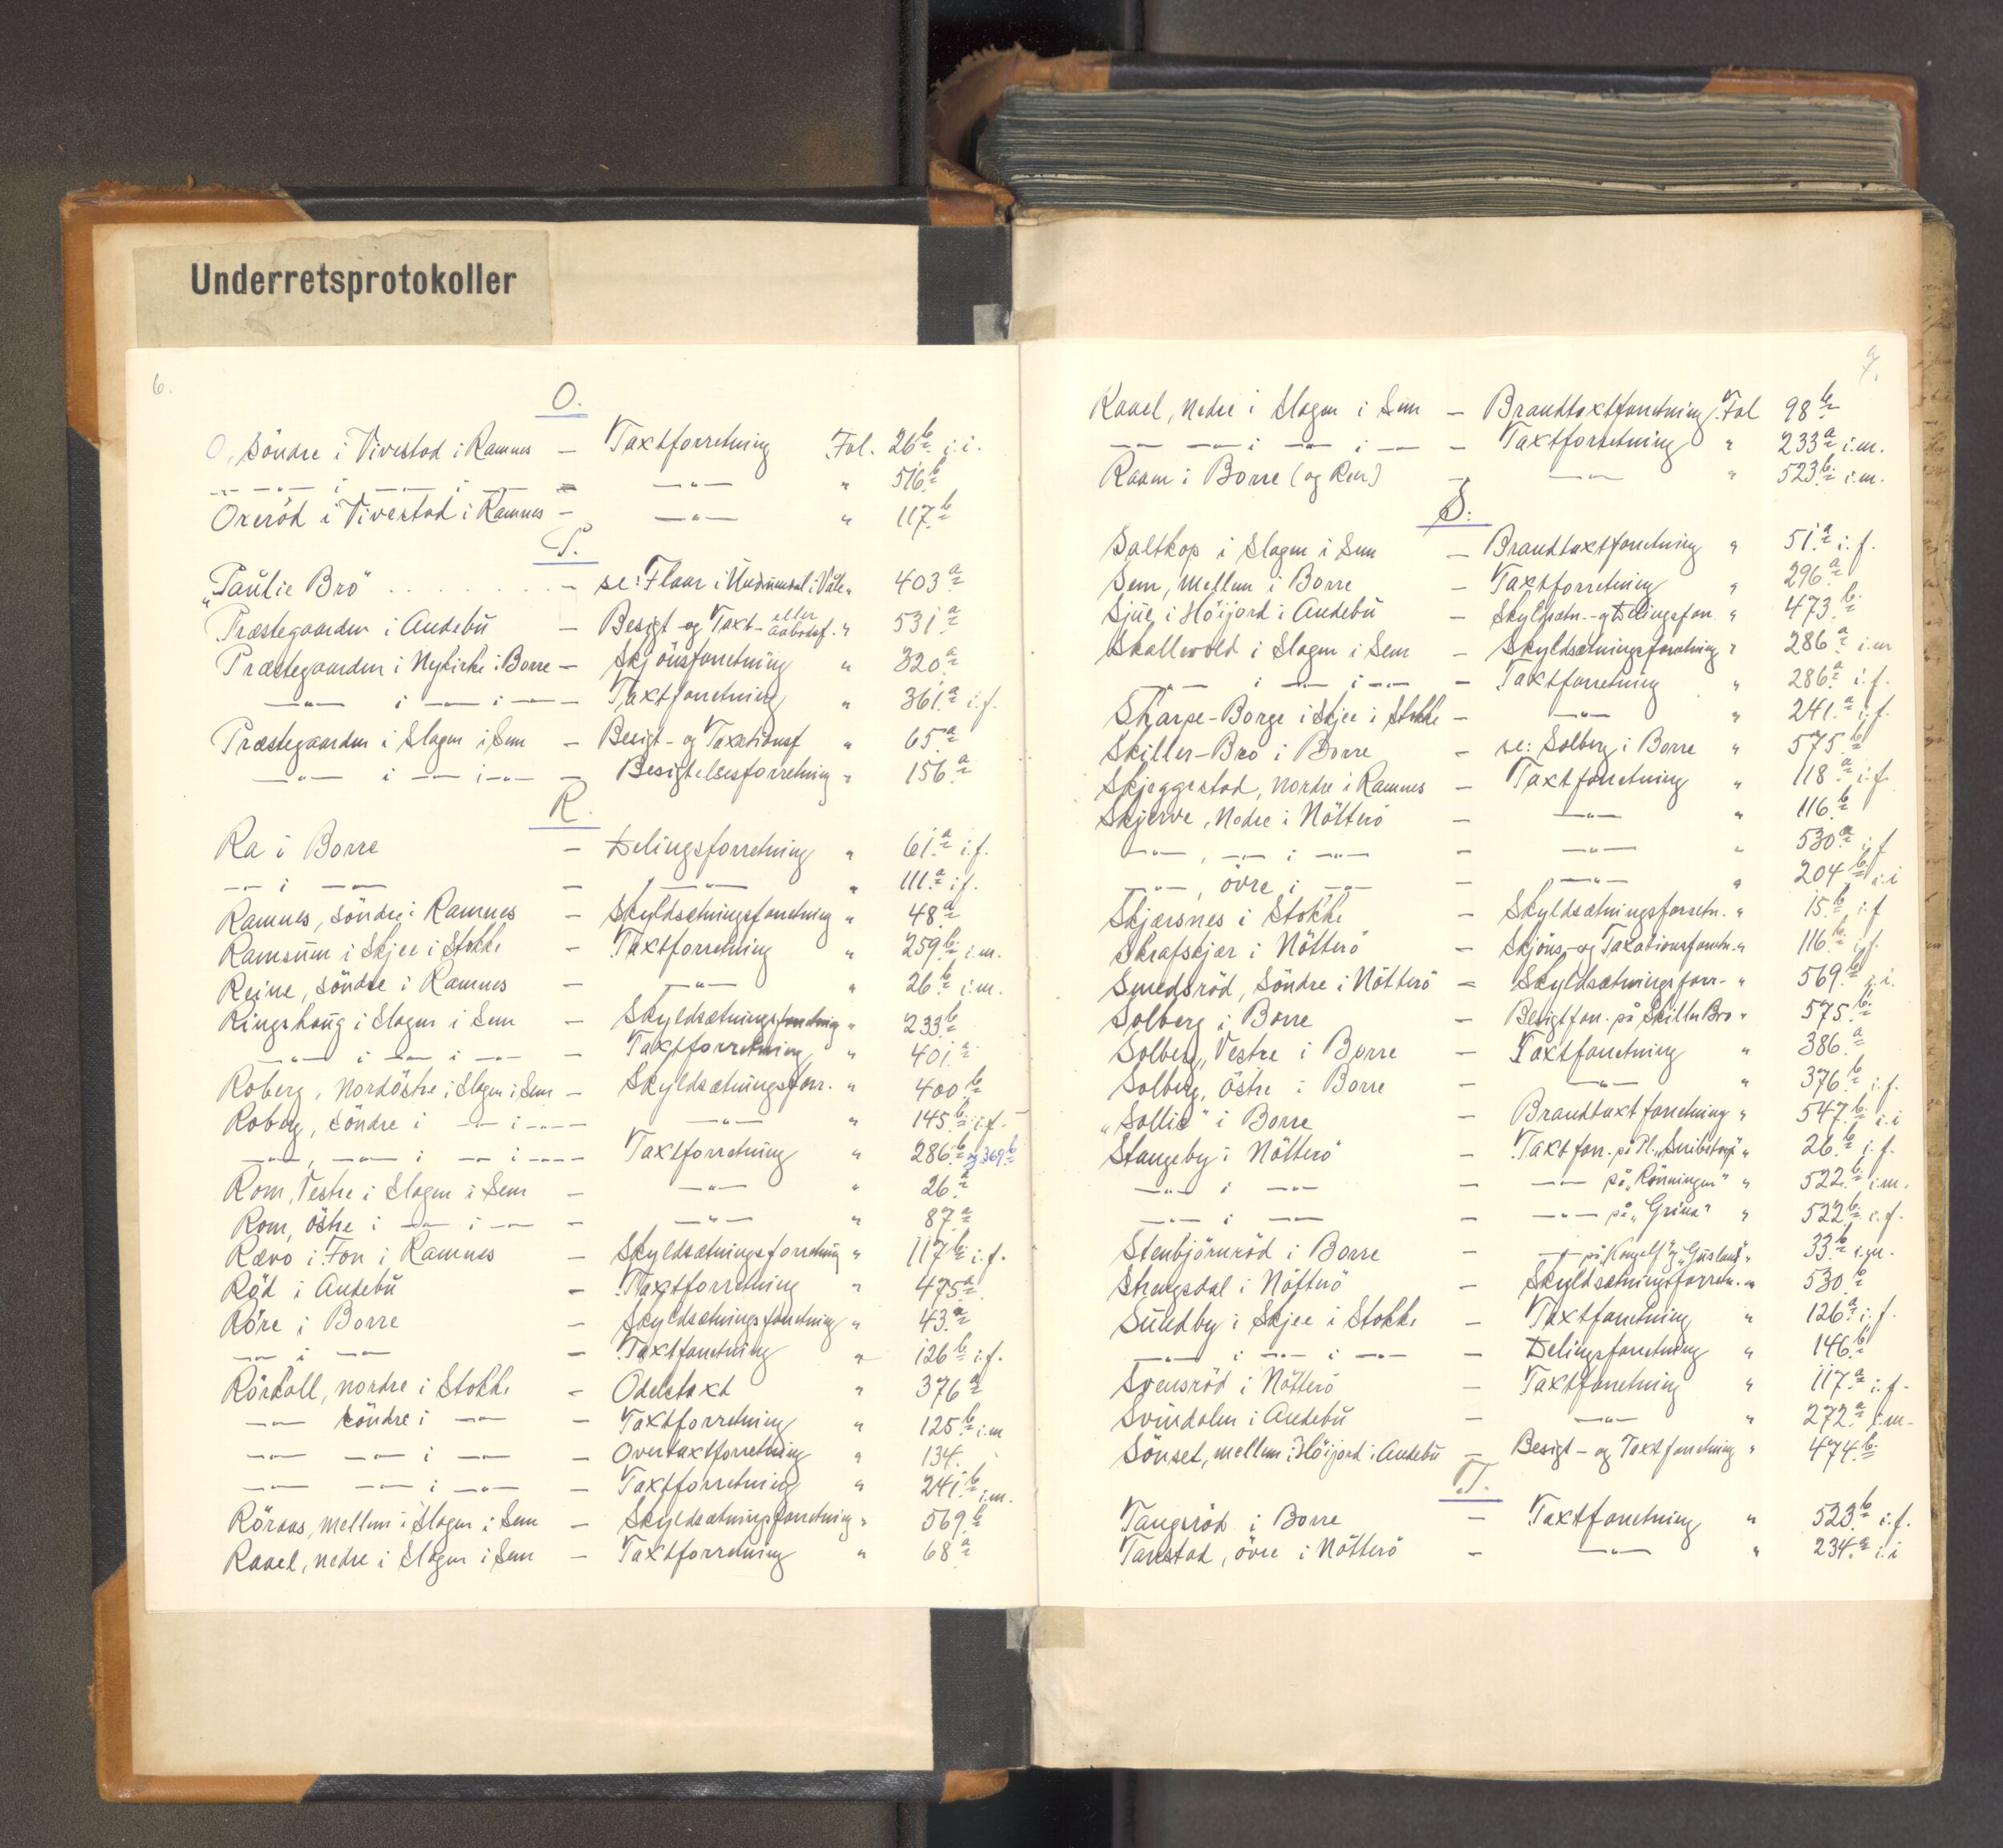 Underretsprotokoller
6.
O.
O, Söndre i Vivestad i Ramnes — Taxtforretning Fol. 26 b i.i.
—"— —"— i —"— i —"— — —"— " 516 b
Oreröd i Vivestad i Ramnes — —"— " 117 b
P.
"Paulie Bro" . . . . . . . . — se: Flaar i Undrumsal i Våle " 403 a
Præstegaarden i Andebu — Besigt- og Taxt- eller Aabodsf. " 531 a
Præstegaarden i Nykirke i Borre — Skjönsforretning " 320 a
—"— i —"— i —"— — Taxtforretning " 361 a i.f.
Præstegaarden i Slagen i Sem — Besigt- og Taxationsf " 65 a
—"— i —"— i —"— — Besigtelsesforretning " 156 a
R.
Ra i Borre — Delingsforretning " 61 a i.f.
—"— i —"— — —"— " 111 a i.f.
Ramnes, söndre i Ramnes — Skyldsætningsforretning " 48 a
Ramsum i Skjee i Stokke — Taxtforretning " 259 b i.m.
Reine, söndre i Ramnes — —"— " 26 b i.m.
Ringshaug i Slagen i Sem — Skyldsætningsforretning " 233 b
—"— i —"— i —"— — Taxtforretning " 401 a
Roberg, Nordöstre i Slagen i Sem — Skyldsætningsforr. " 400 b
Roberg, söndre i —"— i —"— — —"— " 145 b i.f.
—"—, —"— i —"— i —"— — Taxtforretning " 286 b og 369 b
Rom, Vestre i Slagen i Sem — —"— " 26 a
Rom, östre i —"— i —"— — —"— " 87 a
Rævo i Fon i Ramnes — Skyldsætningsforretning " 117 b i.f.
Röd i Andebu — Taxtforretning " 475 a
Röre i Borre — Skyldsætningsforretning " 43 a
—"— i —"— — Taxtforretning " 126 b i.f.
Rörkoll, nordre i Stokke — Odelstaxt " 376 a
—"— söndre i —"— — Taxtforretning " 125 b i.m
—"— —"— i —"— — Overtaxtforretning " 134.
—"— —"— i —"— — Taxtforretning " 241 b i.m.
Röraas, mellem i Slagen i Sem — Skyldsætningsforretning " 569 b
Raael, nedre i Slagen i Sem — Taxtforretning " 68 a
7.
Raael, Nedre i Slagen i Sem — Brandtaxtforretning. Fol 98 b
—"— —"— i —"— i —"— — Taxtforretning " 233 a i.m.
Raam i Borre (og Ren) — —"— " 523 b i.m.
S.
Saltkop i Slagen i Sem — Brandtaxtforretning " 51 a i.f.
Sem, Mellem i Borre — Taxtforretning " 296 a
Sjue i Höijord i Andebu — Skyldsætn.- og Delingsforr. " 473 b
Skallevold i Slagen i Sem — Skyldsætningsforretning " 286 a i.m
—"— i —"— i —"— — Taxtforretning " 286 a i.f.
Skarpe-Borge i Skjee i Stokke — —"— " 241 a i.f.
Skiller-Bro i Borre — se: Solberg i Borre " 575 b
Skjeggestad, nordre i Ramnes — Taxtforretning " 118 a i.f.
Skjerve, Nedre i Nötterö — —"— " 116 b
—"—, —"— i —"— — —"— " 530 a i.f
—"—, övre i —"— — —"— " 204 b i.i
Skjærsnes i Stokke — Skyldsætningsforretn. " 15 b i.f
Skrafskjær i Nötterö — Skjöns- og Taxationsforretn. " 116 b i.f.
Smedsröd, Söndre i Nötterö — Skyldsætningsforr- " 569 b i.i.
Solberg i Borre — Besigt forr. på Skiller Bro " 575 b
Solberg, Vestre i Borre — Taxtforretning " 386 a
Solberg, östre i Borre — —"— " 376 b i.f.
"Sollie" i Borre — Brandtaxtforretning " 547 b i.i
Stangeby i Nötterö — Taxt forr. på Pl. " 26 b i.f.
—"— i —"— — —"— på "Rönningen" " 522 b i.m.
—"— i —"— — —"— på "Grina" " 522 b i.f.
Stenbjörnröd i Borre — —"— på " 33 b i.m.
Strengsdal i Nötterö — Skyldsætningsforretn. " 530 b
Sundby i Skjee i Stokke — Taxtforretning " 126 a i.f.
—"— i —"— i —"— — Delingsforretning " 146 b
Svensröd i Nötterö — Taxtforretning " 117 a i.f.
Svindalen i Andebu — —"— " 272 a i.m.
Sönset, mellem i Höijord i Andebu — Besigt- og Taxtforretning " 474 b
T.
Tangsröd i Borre — Taxtforretning " 523 b i.f.
Tanstad, övre i Nötterö — —"— " 234 a i.i